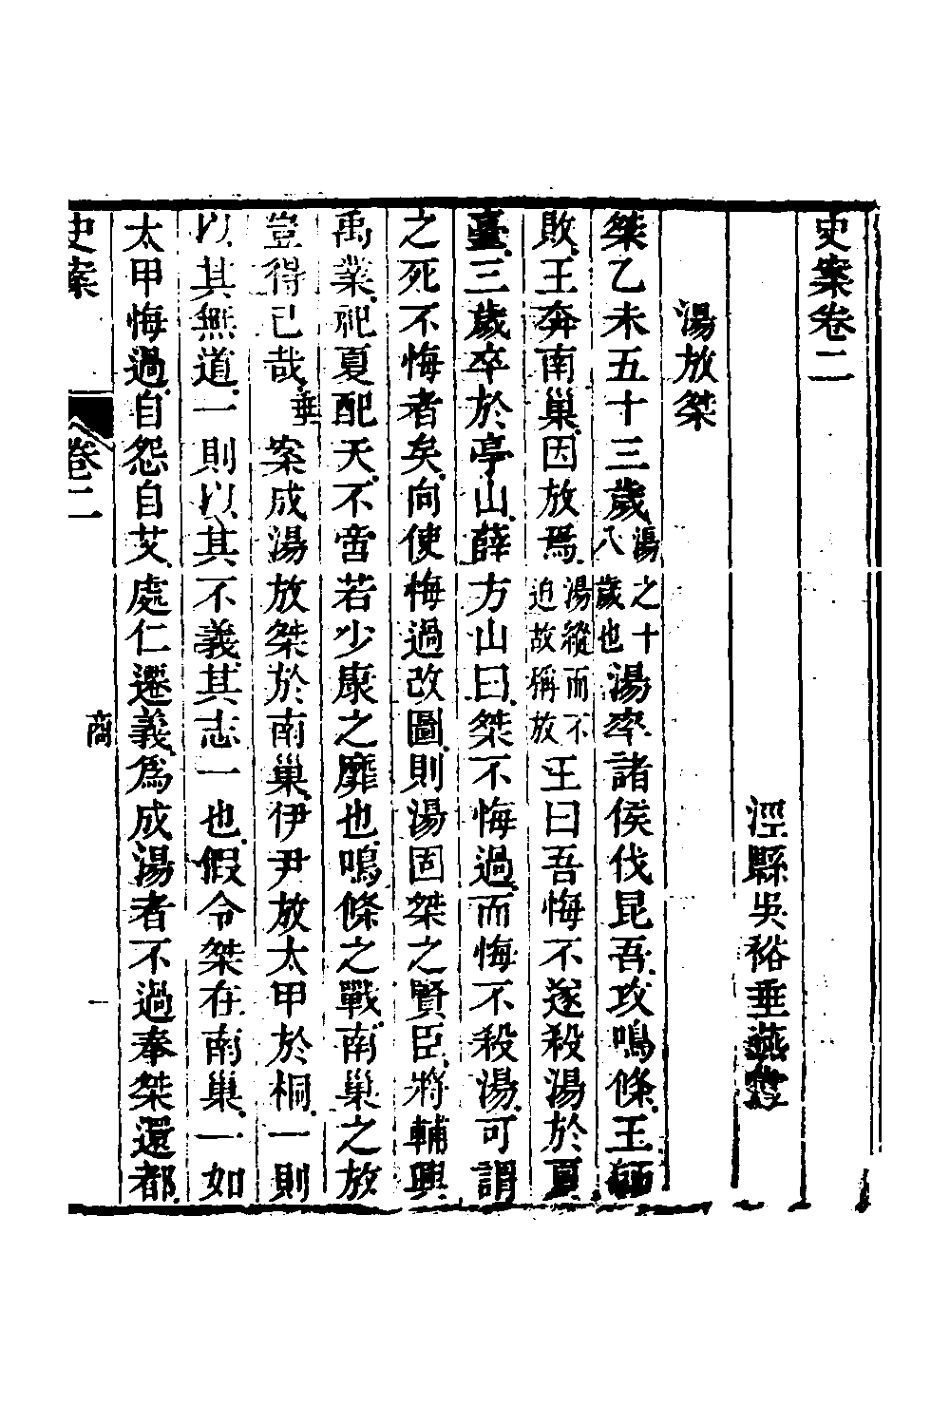 史案卷二
涇縣吳裕垂燕堂
湯放桀
桀乙未五十三歲湯之十八歲也湯率諸侯伐昆吾攻鳴條王師
敗王奔南巢因放焉湯縱而不迫故稱放王曰吾悔不遂殺湯於夏
臺三歲卒於亭山薛方山曰桀不悔過而悔不殺湯可謂
之死不悔者矣向使悔過改圖則湯固桀之賢臣將輔興
禹業祀夏配天不啻若少康之靡也鳴條之戰南巢之放
豈得已哉垂案成湯放桀於南巢伊尹放太甲於桐一則
以其無道一則以其不義其志一也假令桀在南巢一如
太甲悔過自怨自艾處仁遷義爲成湯者不過奉桀還都
史案 卷二 商 一